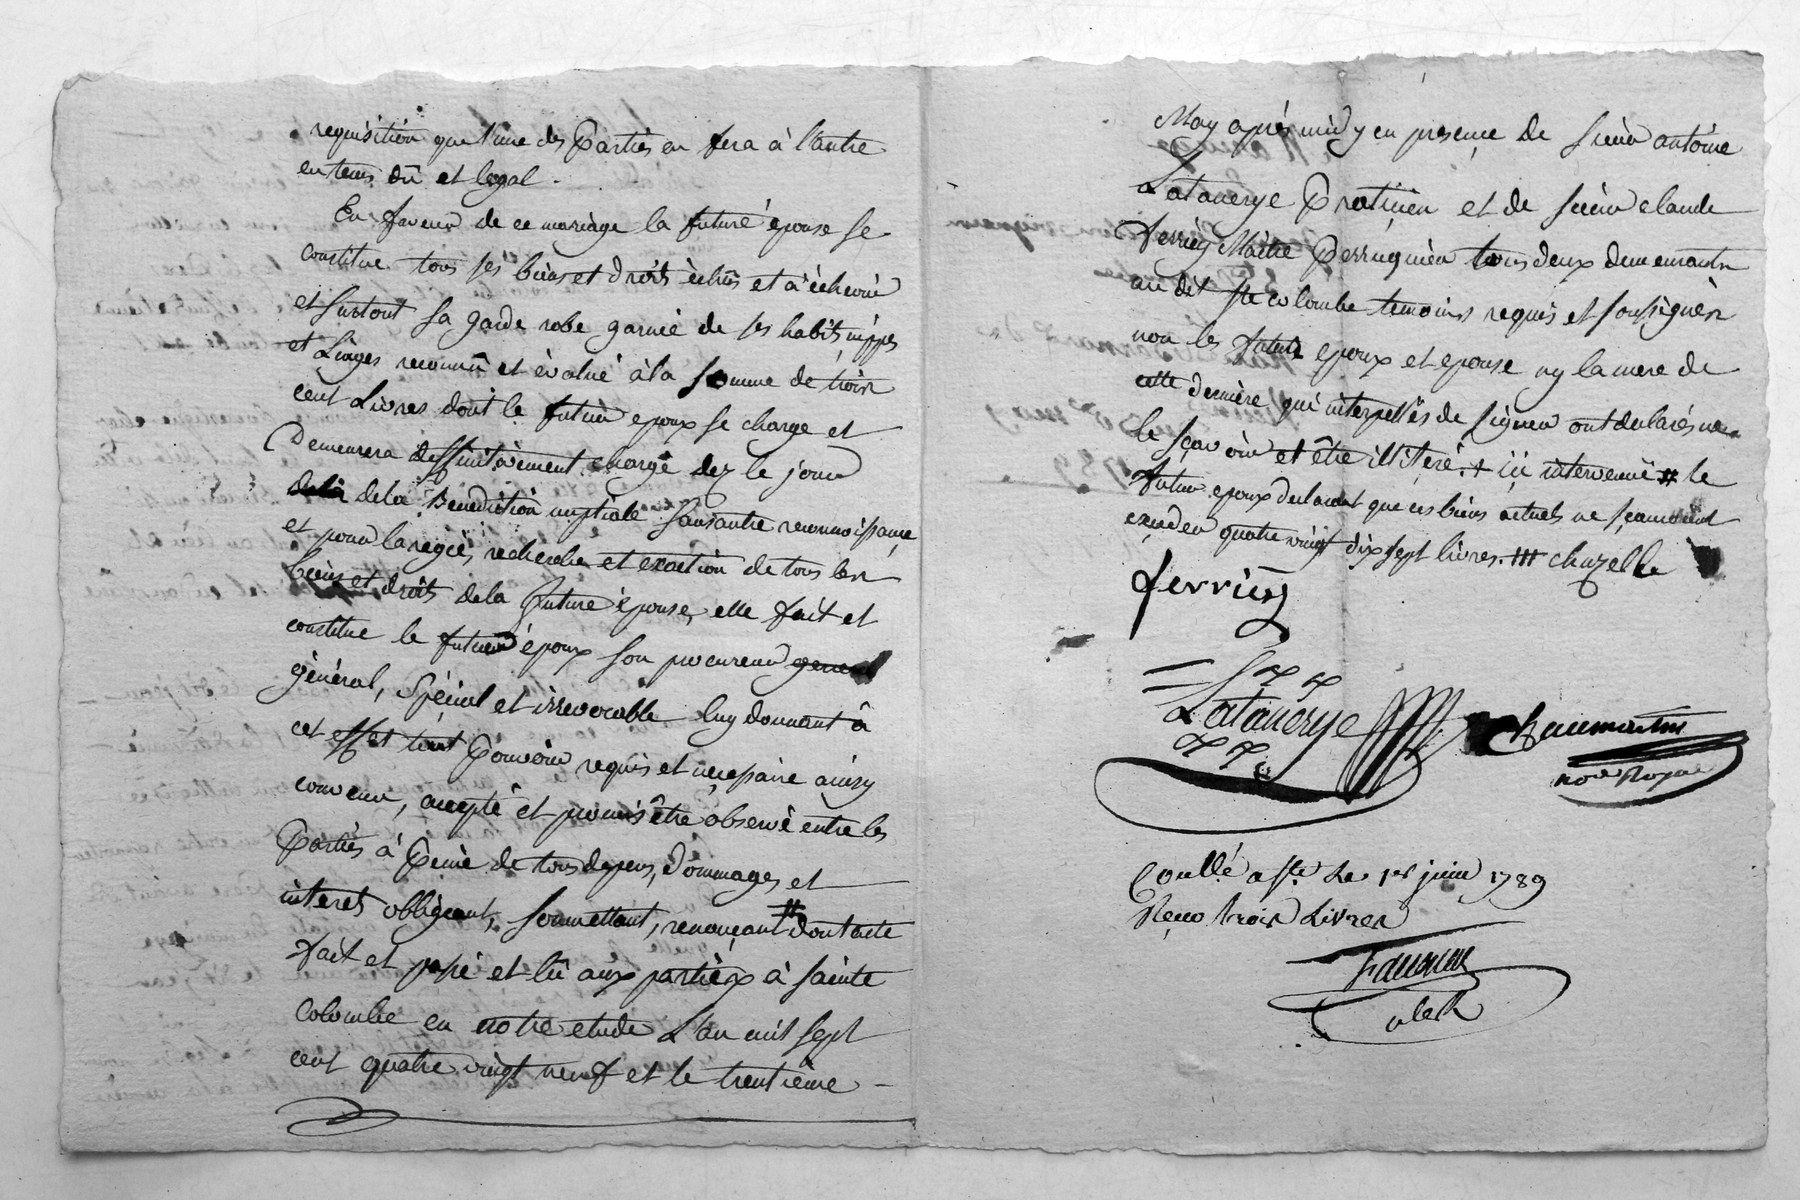 requisition que l'une des Parties en fera à l'autre
en tems dû et legal.
En faveur de ce mariage la future épouse se
constitue tous ses biens et droits échus et à écheoir
et surtout sa garde robe garnie de ses habits nippes
et Linges reconnû et évalué à la somme de trois
cent Livres dont le futur epoux se charge et
Demeurera deffinitivement chargé dez le jour
dela Benediction nuptiale sans autre reconnoissance
et pour la regie, recherche et exaction de tous les
biens et droits dela future épouse, elle fait et
constitue le futur époux son procureur general
général, spécial et irrevocable luy donnant à
cet effet tout Pouvoir requis et necessaire ainsy
convenu, accepté et promis être observé entre les
Parties à Peine de tous depens, Dommages et
interets obligeant, soumettant, renonçant # dont acte
fait et passé et lû aux parties à sainte
Colombe en notre etude L'an mil sept
cent quatre vingt neuf et le trentième
May après midy en presence de sieur antoine
Latanerye Praticien et de sieur claude
ferrieg Maitre Perruquier tous deux demeurants
au dit ste colombe temoins requis et soussignés
non les futurs epoux et epouse ny la mere de
cette derniere qui interpellés de signer ont declarés ne
le sçavoir et être illiteré. + ici intervenu # le
futur epoux declarant que ces biens actuels ne sçauroient
exceder quatre vingt dix sept livres. ### chazelle
ferrieg
Latanerye
chaumartin
nore Royal
Conllé a ste Le 1er juin 1789
Reçu trois Livres